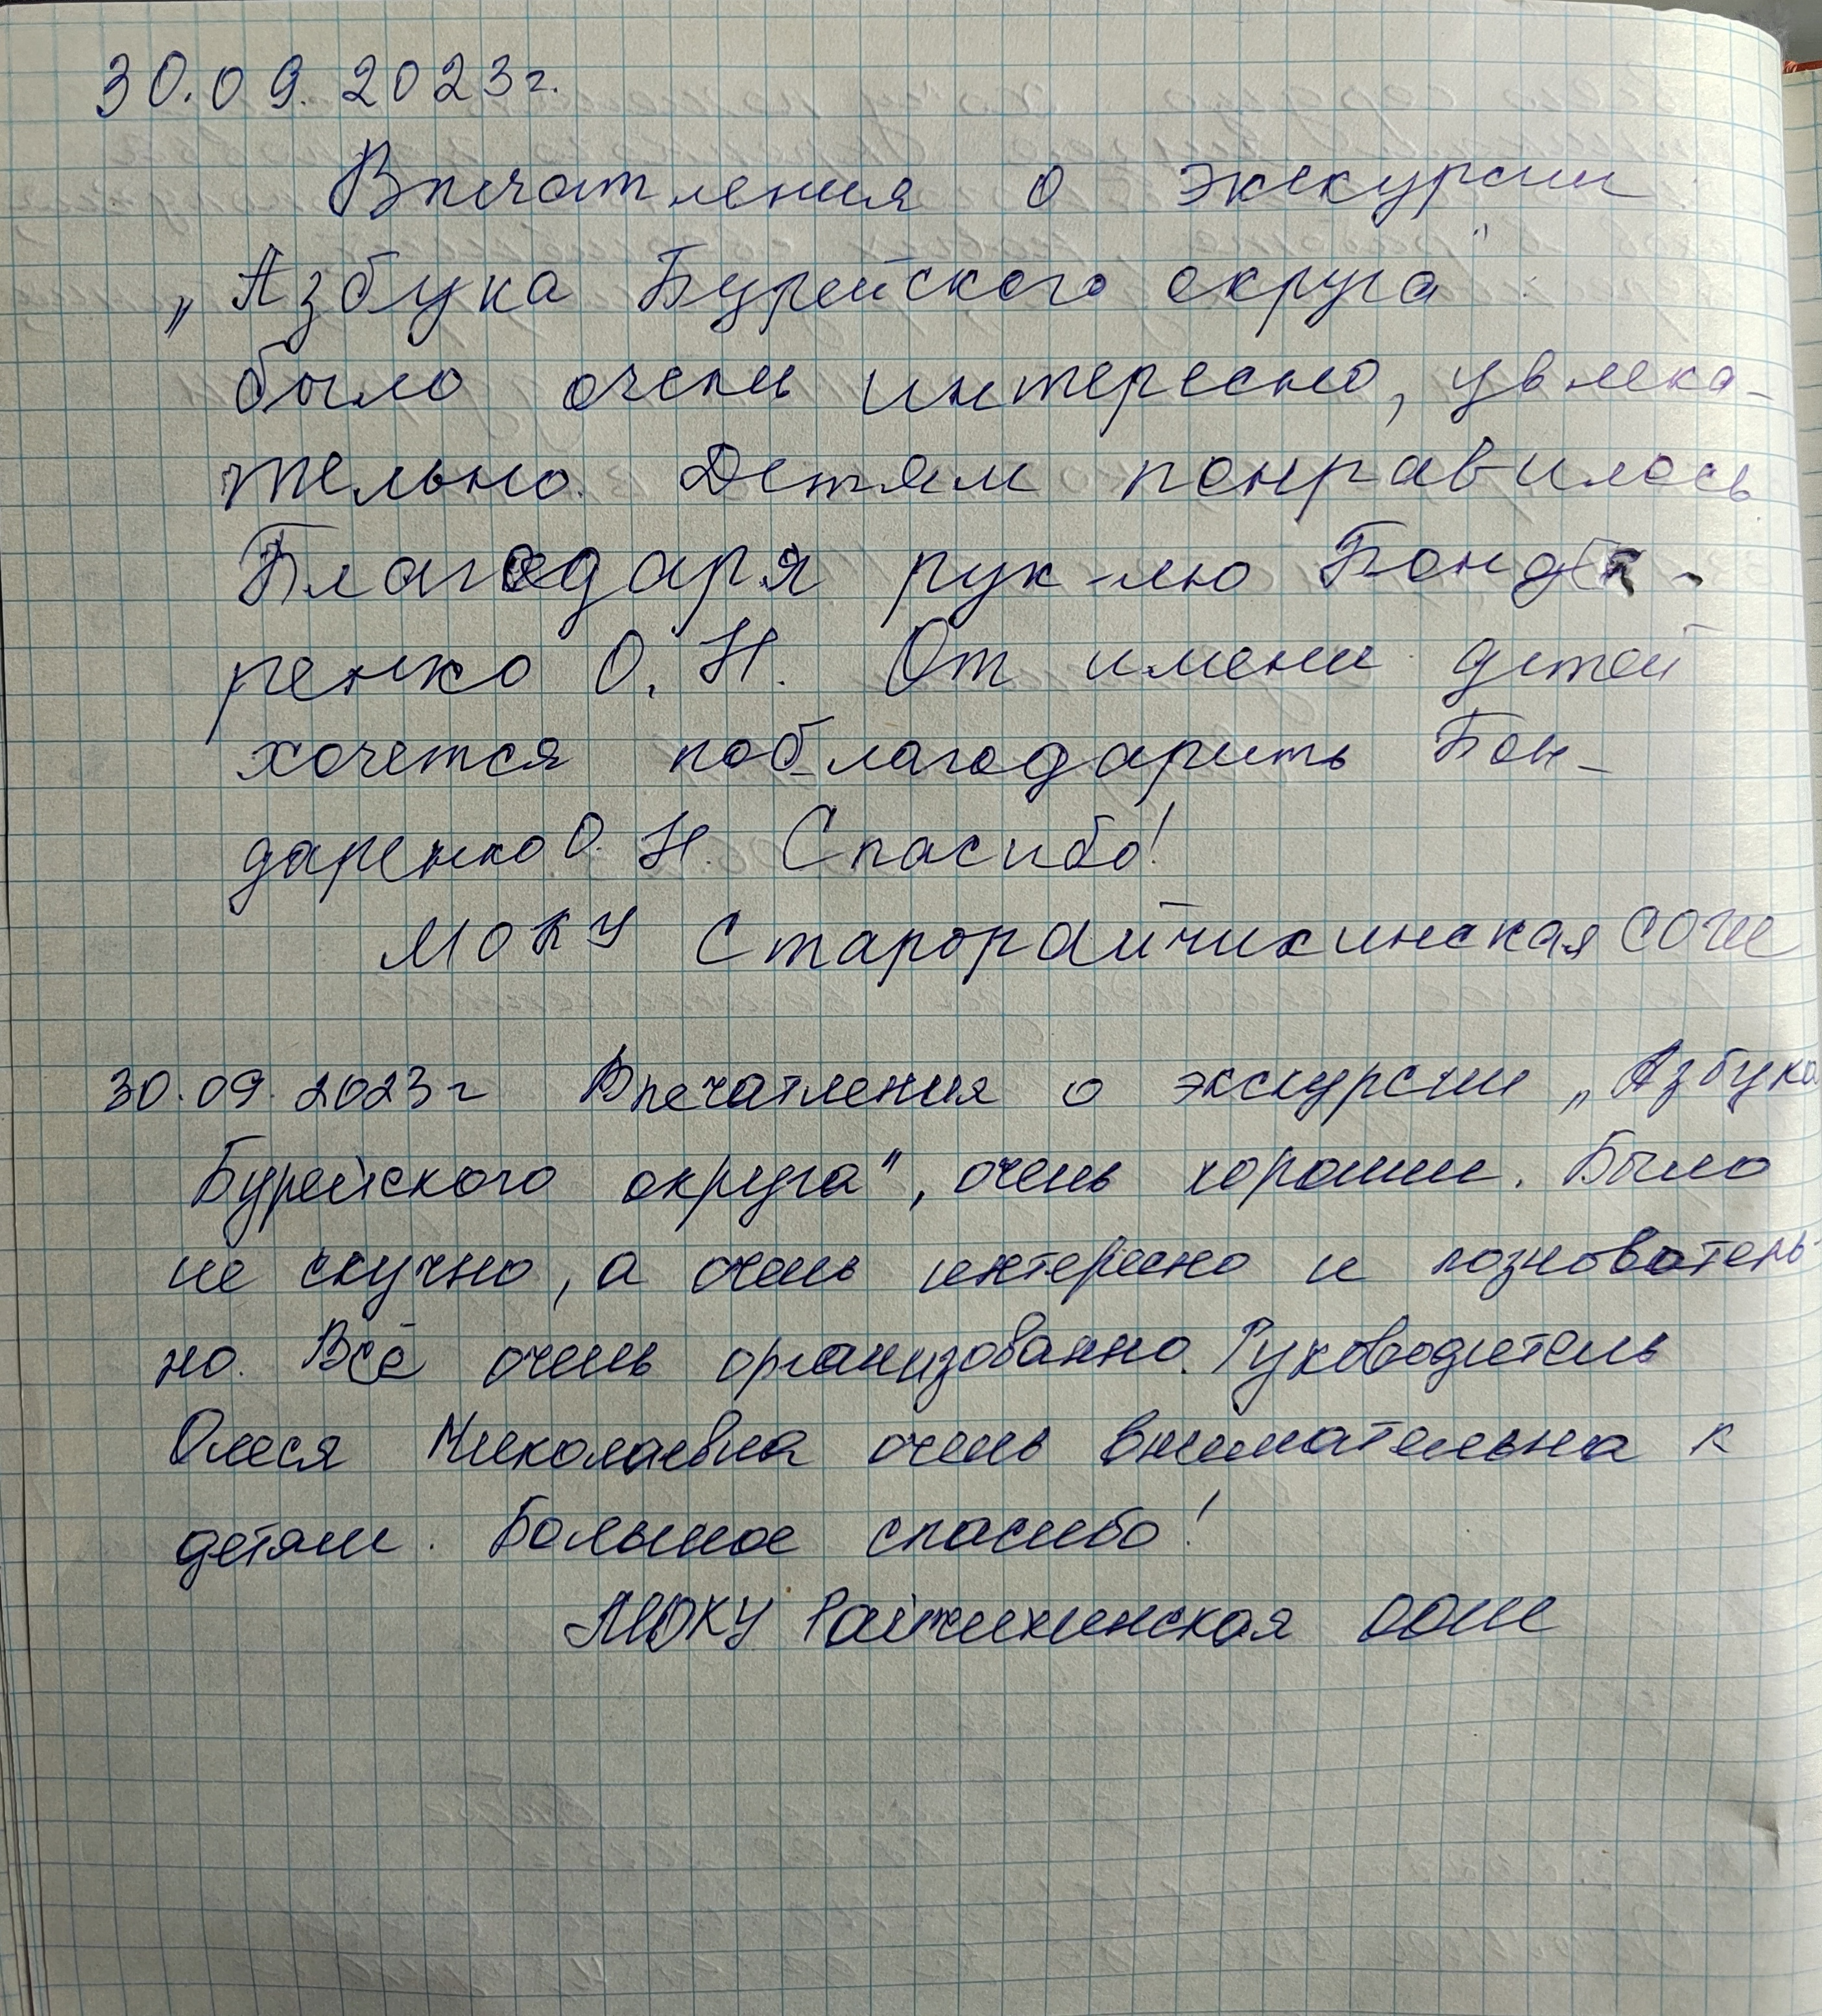 30.09.2023г.
Впечатления о экскурсии
„Азбука Бурейского округа":
было очень интересно, увлека-
тельно. Детям понравилось.
Благодаря рук-лю Бонда-
ренко О. Н. От имени детей
хочется поблагодарить Бон-
даренко О. Н. Спасибо!
МОКУ Старорайчихинская СОШ
30.09.2023г Впечатления о экскурсии „Азбука
Бурейского округа", очень хорошие. Было
не скучно, а очень интересно и познователь-
но. Всё очень организованно. Руководитель
Олеся Николаевна очень внимательна к
детям. Большое спасибо!
МОКУ Райчихинская ООШ